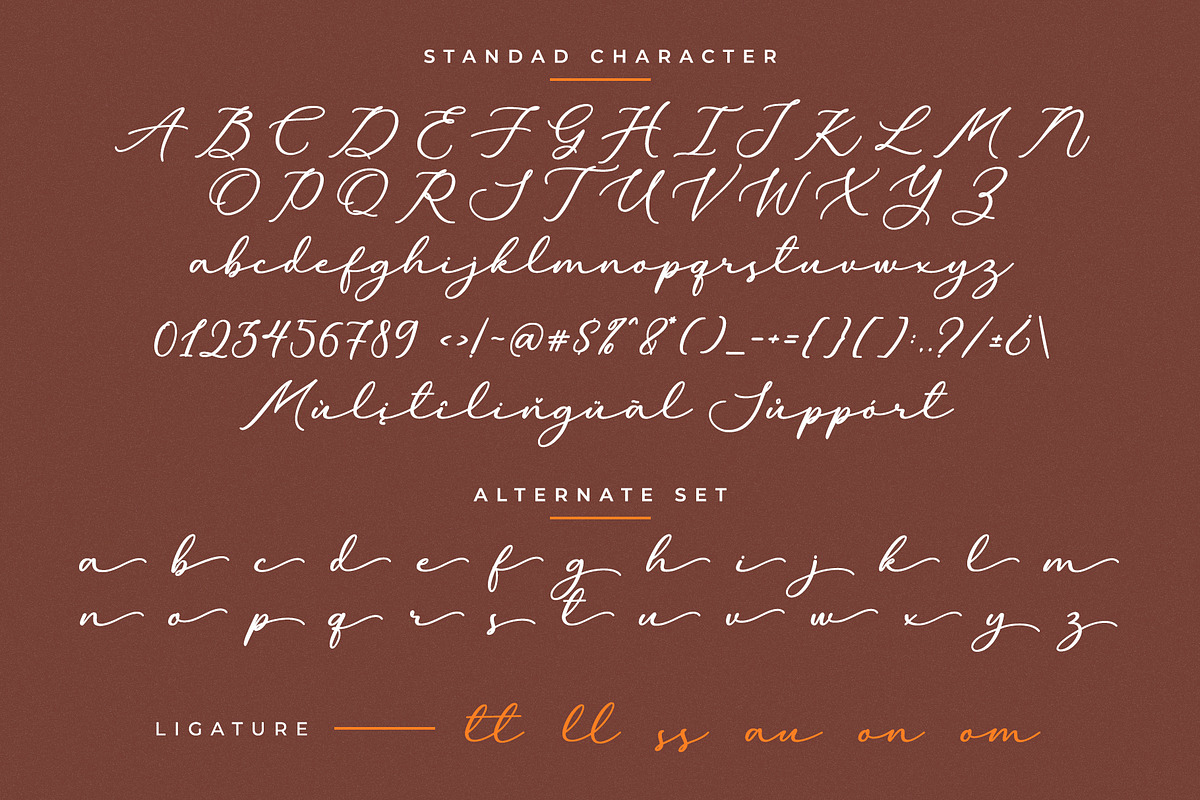 STANDAD CHARACTER
A B C D E F G H I J K L M N
O P Q R S T U V W X Y Z
abcdefghijklmnopqrstuvwxyz
0123456789 <>!~@#$%^&*()_-+={}[]:,.?/±¿\
Mùlįtîliňgüãl Sůppórt
ALTERNATE SET
a b c d e f g h i j k l m
n o p q r s t u v w x y z
LIGATURE tt ll ss au on om